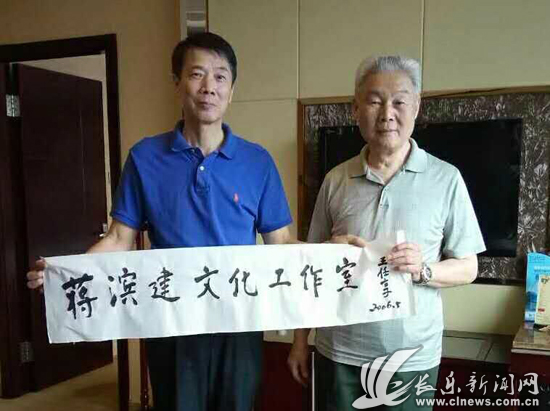 蒋滨建文化工作室
王任享
2016.8
长乐新闻网
www.clnews.com.cn